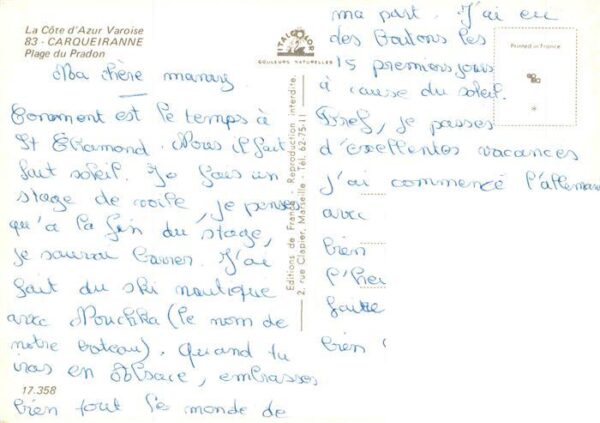 La Côte d'Azur Varoise
83 - CARQUEIRANNE
Plage du Pradon
Ma chère mamy
Comment est le temps à
St Chamond. Nous il fait
fait soleil. Je fais un
stage de voile, je penses
qu'à la fin du stage,
je saurau barrer. J'ai
fait du ski nautique
avec Mouchka (le nom de
notre bateau). Quand tu
iras en Alsace, embrasses
bien tout le monde de
17.358
ITALCOLOR
COULEURS NATURELLES
Editions de France - Reproduction interdite.
2, rue Clapier, Marseille - Tél. 62-75-11
ma part. J'ai eu
des boutons les
15 premiers jours
à cause du soleil.
Bref, je passes
d'excellentes vacances
j'ai commencé l'alleman
avec
bien
l'heu
faute
bien
Printed in France